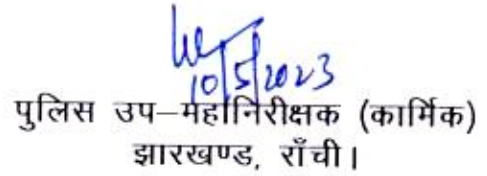 10/5/2023
पुलिस उप–महानिरीक्षक (कार्मिक)
झारखण्ड, राँची।